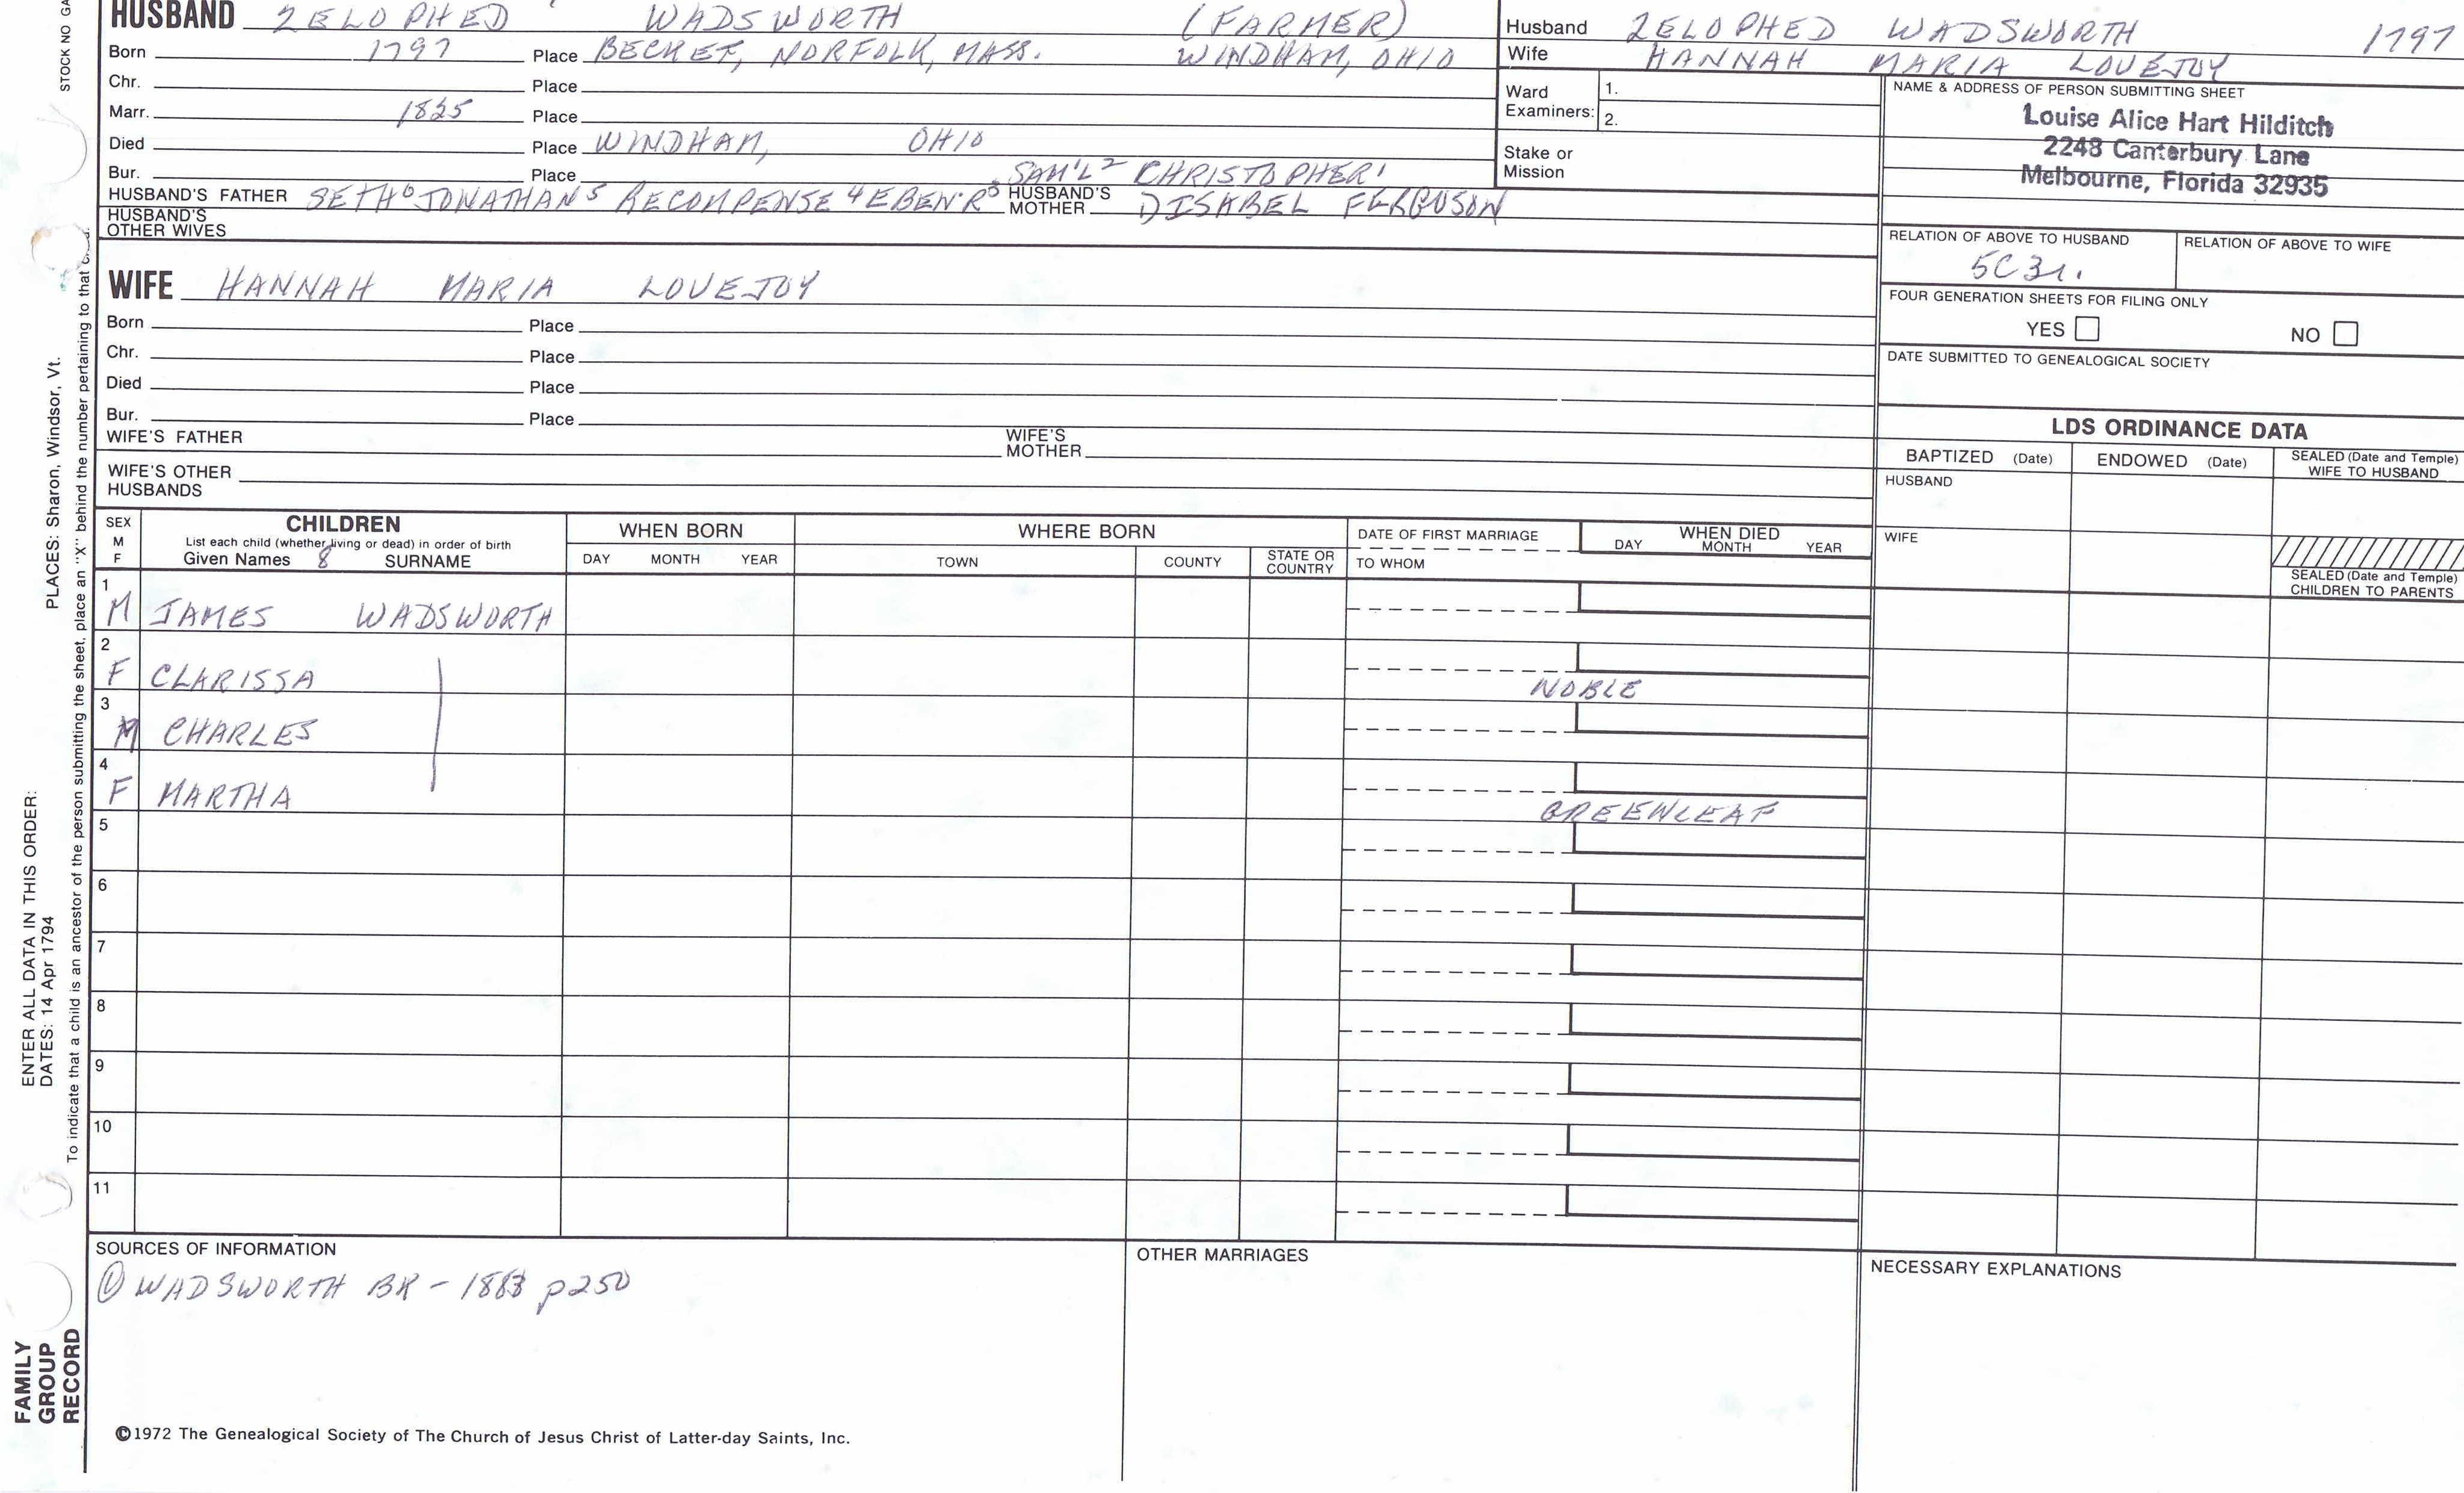 STOCK NO GA
HUSBAND ZELOPHED WADSWORTH (FARMER)
Born 1797 Place BECKET, NORFOLK, MASS. WINDHAM, OHIO
Chr. Place
Marr. 1825 Place
Died Place WINDHAM, OHIO
Bur. Place SAM'L 2 CHRISTOPHER 1
HUSBAND'S FATHER SETH 6 JONATHAN 5 RECOMPENSE 4 EBEN'R 3 HUSBAND'S MOTHER ISABEL FERGUSON
HUSBAND'S OTHER WIVES
WIFE HANNAH MARIA LOVEJOY
Born Place
Chr. Place
Died Place
Bur. Place
WIFE'S FATHER WIFE'S MOTHER
WIFE'S OTHER HUSBANDS
Husband ZELOPHED WADSWORTH 1797
Wife HANNAH MARIA LOVEJOY
Ward Examiners: 1.
2.
Stake or Mission
NAME & ADDRESS OF PERSON SUBMITTING SHEET
Louise Alice Hart Hilditch
2248 Canterbury Lane
Melbourne, Florida 32935
RELATION OF ABOVE TO HUSBAND RELATION OF ABOVE TO WIFE
5C3r.
FOUR GENERATION SHEETS FOR FILING ONLY
YES NO
DATE SUBMITTED TO GENEALOGICAL SOCIETY
LDS ORDINANCE DATA
BAPTIZED (Date) ENDOWED (Date) SEALED (Date and Temple) WIFE TO HUSBAND
HUSBAND
WIFE
SEALED (Date and Temple) CHILDREN TO PARENTS
SEX M F CHILDREN WHEN BORN WHERE BORN DATE OF FIRST MARRIAGE WHEN DIED
List each child (whether living or dead) in order of birth
Given Names 8 SURNAME DAY MONTH YEAR TOWN COUNTY STATE OR COUNTRY TO WHOM DAY MONTH YEAR
1 M JAMES WADSWORTH
2 F CLARISSA NOBLE
3 M CHARLES
4 F MARTHA GREENLEAF
5
6
7
8
9
10
11
SOURCES OF INFORMATION
① WADSWORTH BK - 1883 p250
OTHER MARRIAGES
NECESSARY EXPLANATIONS
©1972 The Genealogical Society of The Church of Jesus Christ of Latter-day Saints, Inc.
FAMILY
GROUP
RECORD
ENTER ALL DATA IN THIS ORDER:
DATES: 14 Apr 1794 PLACES: Sharon, Windsor, Vt.
To indicate that a child is an ancestor of the person submitting the sheet, place an "X" behind the number pertaining to that